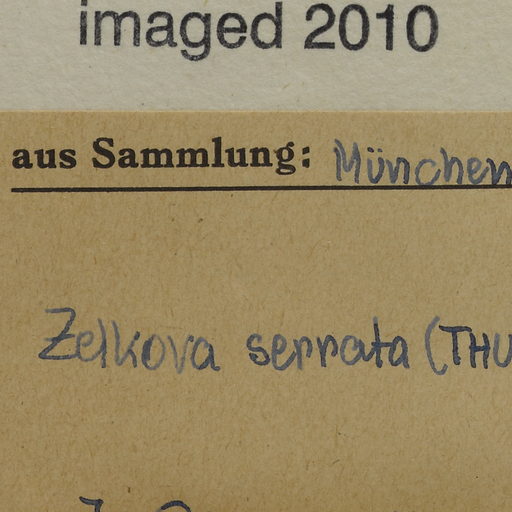 imaged 2010
aus Sammlung: München
Zelkova serrata (THU